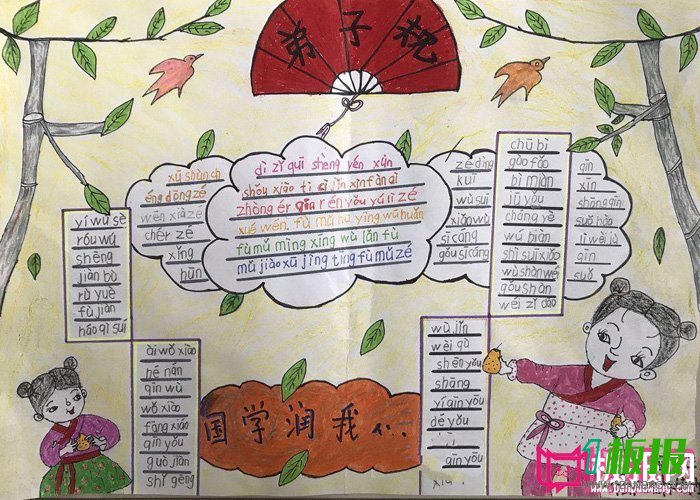 弟子规
dì zǐ guī shèng yén xùn
shǒu xiào tì cì jǐn xìn fàn ài
zhòng ér qīn rén yǒu yú lì zé
xué wén. fù mǔ hū yìng wù huǎn
fù mǔ mìng xíng wù lǎn fù
mǔ jiào xū jìng tīng fù mǔ zé
xū shùn ch
éng dōng zé
wēn xià zé
chér zé
xǐng
hūn
zé dìng
kuī
wù suī
xiǎo wù
sī cáng
gǒu sī cáng
chū bì
gào fǎo
bì miàn
jū yǒu
cháng yè
wú biàn
shì suī xiǎo
wù shàn wéi
gǒu shàn
wéi zǐ dào
qīn
xīn
shāng qīn
suǒ hào
lì wèi jù
qīn
suǒ
yí wù sè
róu wú
shēng
jiàn bù
rù yuè
fù jiàn
háo qì suí
ài wǒ xiào
hé nán
qīn wù
wǒ xiào
fāng xiáo
qīn yǒu
guò jiàn
shǐ gēng
wù jǐn
wèi qù
shēn yǒu
shāng
yí qīn yǒu
dé yǒu
qīn yǒu
国学润我心
板报网